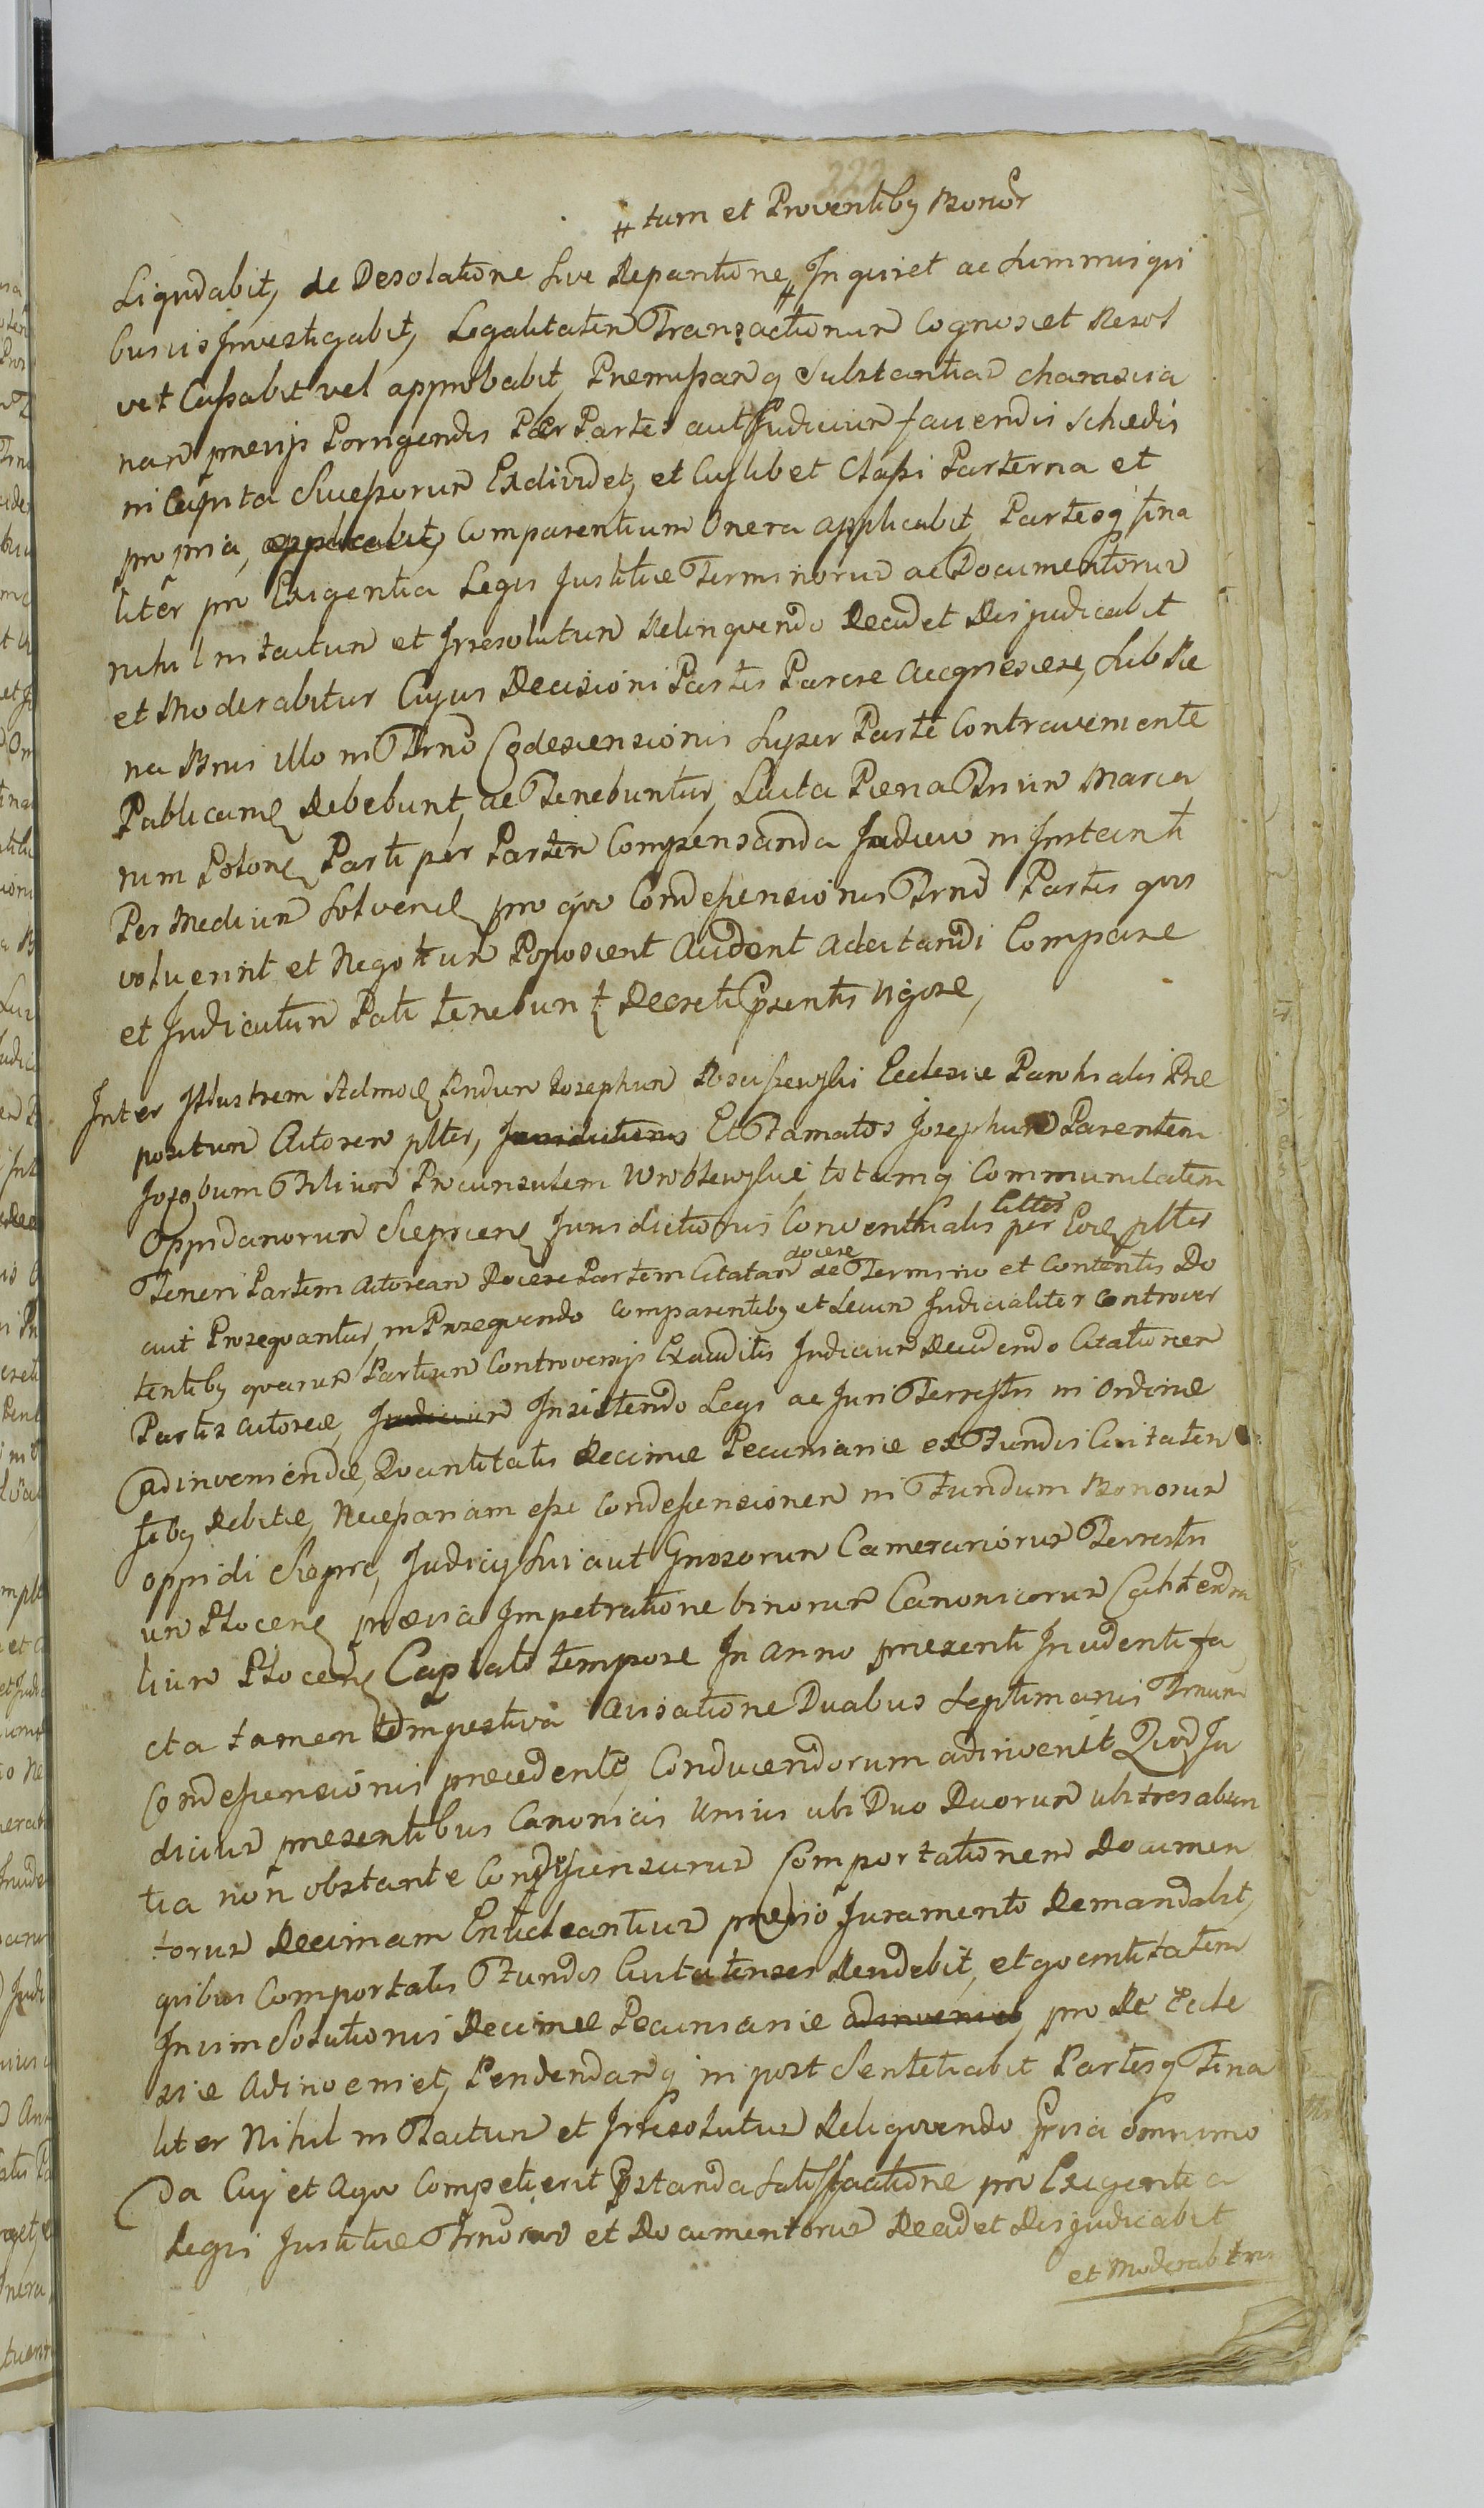 222
# tum et Proventibq Bonor
Liqvdabit, de Desolatione sive Reparatione # Inquiret ac summis qui
busvis Investigabit, Legalitatem Transactionum Cognoscet Resol
vet Cassabit vel approbabit, Premissarq Substantiam
nam previjs Porrigendis Per Partes aut Judicium faciendis Schedis
in Capita Successorum Exdividet, et Cuilibet Classi Paterna et
propria, applicabit, Comparentium Onera applicabit, Partesq fina
liter pro Exigentia Legis Justitiæ Terminorum ac Documentorum
nihil intactum et Irresolutum Relinqvendo Decidet Disjudicabit
et Moderabitur Cujus Decisioni Partes Parere Acqviescere, sub Pæ
na Bnis illo in Trno Condescensionis super Parte Contraveniente
Publicand Debebunt, ac Tenebuntur, Lucta Pæna Trium Marca
rum Polon Parti per Partem Compensanda Judicio in Instanti
Per Medium Solvend pro qvo Condescensionis Trno Partes qvos
voluerint et Negotium Poposcerit Accident Adcitandi Compare
et Judicatum Pati tenebunt Decreti Psentis Vigore,
Inter Illustrem Admod Rndum Josephum Rosciszewski Ecclesiæ Parochialis Præ
positum Actorem pltes, Jurisdictionis Et Famatos Josephum Parentem
Jacobum Filium Proconsulem Wroblewskie, totamq Communitatem
Oppidanorum Sieprcens Jurisdictionis Conventualis per Eord pltes
Teneri Partem Actoream Docere Partem Citatam docere de Termino et Contentis Do
cuit Proseqvantur, in Proseqvendo Comparentibq et secum Judicialiter Controver
tentibq qvarum Partium Controversijs Exauditis Judicium Decidendo Citationem
Partis Actoreæ, Judicium Insistendo Legi ac Juri Terrestri in Ordine
Adinveniendæ, Qvantitatis Decimæ Pecuniariæ ex Fundis Civitaten
sibq Debitæ, Necessariam esse Condescensionem in Fundum Bonorum
oppidi Sieprc, Judicij sui aut Gnosorum Camerariorum Terrestri
um Plocens prævia Impetratione binorum Canonicorum Cathedra
lium Plocens Captato tempore In anno presenti Incidenti fa
cta tamen tempestiva Avisatione Duabus Septimanis Trnum
Condescensionis precedente Conducendorum adinvenit Qvod Ju
dicium presentibus Canonicis Unius ubi Duo Duorum ubi tres absen
tia non obstante Condescensurum Comportationem Documen
torum Decimam Enucleantium prævio Juramento Demandabit,
qvibus Comportatis Fundos Civitatenses Rendebit, et qvantitatem
Inuim Solutionis Decimæ Pecuniariæ adinveniet, pro Re Eccle
siæ Adinveniet, Pendendarq in post Sententiabit Partesq Fina
liter Nihil in Tactum et Irresolutum Reliqvendo Previa omnimo
da Cuj et Aqvo Competierit Pstanda Satisfactione pro Exigentia
Legis Justitiæ Trnorum et Documentorum Decidet Disjudicabit
et Moderabitur